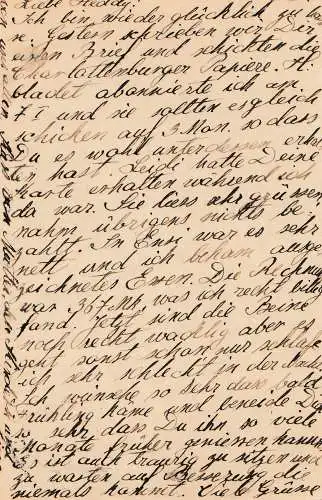 Liebe Heddy!
Ich bin wieder glücklich zu Hau
se. Gestern schrieben wir Dir
einen Brief und schickten die
Charlottenburger Papiere. H.
bladet abonnierte ich am
7 I und sie sollten es gleich
schicken auf 3 Mon. so dass
Du es wohl unterdessen erhal
ten hast. Heidi hatte Deine
Karte erhalten während ich
da war. Sie liess sehr grüssen
nahm übrigens nichts be
zahlt. In war es sehr
nett und ich bekam ausge
zeichnetes Essen. Die Rechnung
war 367 Mk was ich recht billig
fand. Jetzt sind die Beine
noch recht wachlig aber
geht sonst schon, nur schlafe
ich sehr schlecht in der Nacht.
Ich wünsche so sehr dass bald
Frühling käme und beneide Dich
so sehr dass Du ihn so viele
Monate früher geniessen kannst.
Es ist auch traurig zu sitzen und
zu warten auf Besserung die
niemals kommt. Viele Grüsse